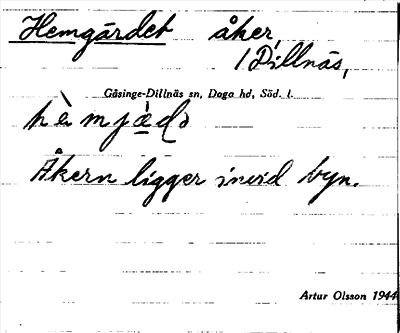 Hemgärdet åker,
/ Dillnäs,
Gåsinge-Dillnäs sn, Daga hd, Söd. l.
hè mjæ̀də
Åkern ligger invid byn.
Artur Olsson 1944